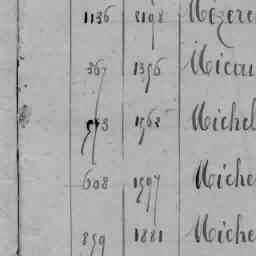 1136 2198 Mézere
367 1356 Micou
573 1562 Michel
608 1597 Miche
859 1881 Miche